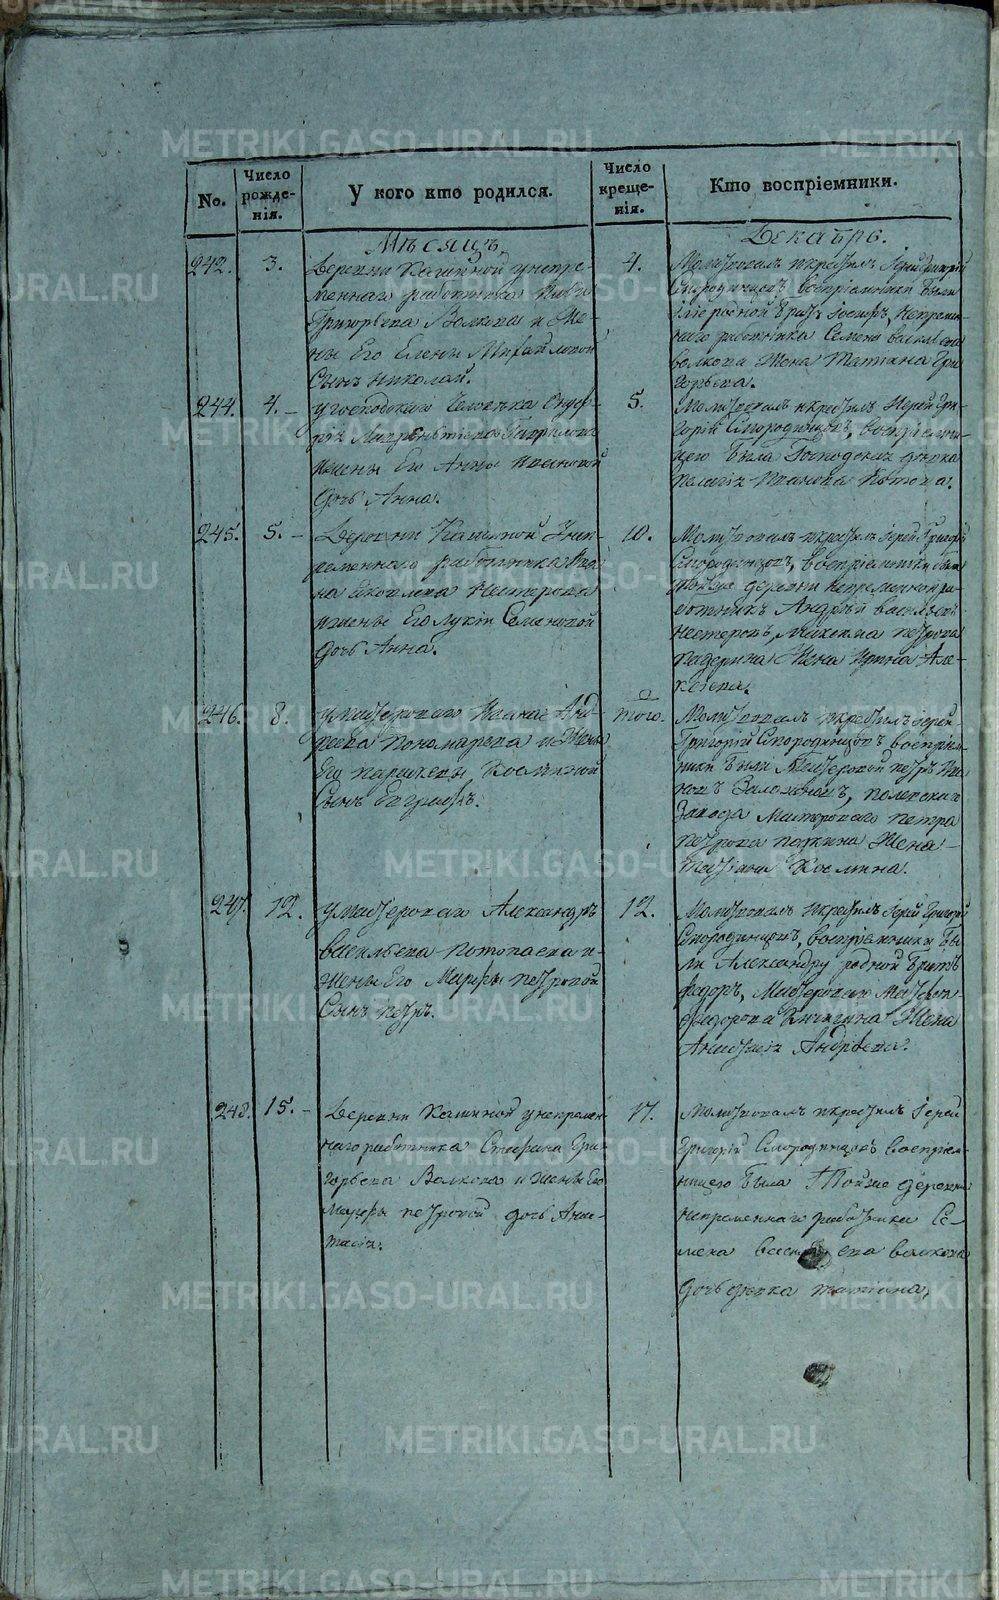 No.
Число рожде-нія.
У кого кто родился.
Число креще-нія.
Кто воспріемники.
Мѣсяцъ
Декабрь.
242.
3.
Деревни Калиной унепре-
меннаго работника
Григорьева Волкова и Же-
ны Его Елены Михайловой
Сынъ Николай.
4.
Молитвовалъ икрестилъ Іерей Григорій
Смородинцовъ воспріемники были
родной братъ Іосифъ, Непремен-
наго работника Семена василева
волкова Жена Татіана Гри
горьева.
244.
4.
угосподскаго Человѣка
Гаврилова
ижены Его Анны Ивановой
дочь Анна.
5.
Молитвовалъ икрестилъ Іерей Гри-
горій Смородинцовъ, воспріемни-
цею была Господская дѣвка
Пелагія Иванова
245.
5.
Деревни Калиной Унеп
ременнаго работника Ива
на Яковлева Нестерова
ижены Его Лукіи Семеновой
дочь Анна.
10.
Молитвовалъ икрестилъ Іерей Григорій
Смородинцовъ, воспріемники были
деревни непременной ра
ботникъ Андрей васильевъ
Нестеровъ, петрова
Жена Ирина Але-
ксіева.
246.
8.
умастероваго Ивана Анд-
реева Пономарева и Жены
Его парасковьи Космином
Сынъ Евграфъ.
того.
Молитвовалъ икрестилъ Іерей
Григорій Смородинцовъ воспріем-
ники были Мастеровой петръ Ива
новъ полевскаго
Завода Мастероваго петра
петрова Жена
Татіана Космина.
247.
12.
умастероваго Александра
васильева Потопаева и
Жены Его Марфы петровой
Сынъ петръ.
12.
Молитвовалъ икрестилъ Іерей Григорій
Смородинцовъ, воспріемники бы-
ли Александру родной братъ
федоръ, Мастероваго
федорова Жена
Анастасія Андреева.
248.
15.
Деревни Калиной унепремен
наго работника Стефана Гри-
горьева Волкова и жены Его
Марфы петровой дочь Анас-
тасія.
17.
Молитвовалъ икрестилъ Іерей
Григорій Смородинцовъ воспріем-
ницею была Тойже деревни
непременнаго работника Се-
мена васильева волкова
дочь дѣвка татіана.
METRIKI.GASO-URAL.RU